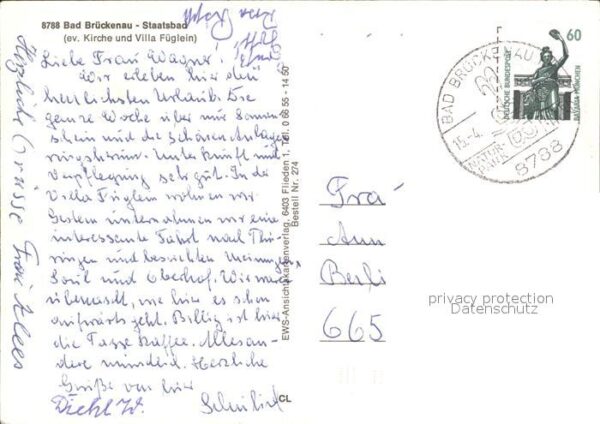 8788 Bad Brückenau - Staatsbad
(ev. Kirche und Villa Füglein)
Liebe Frau Wagner!
Wir erleben hier den
herrlichsten Urlaub. Die
ganze Woche über nur Sonnen
schein und die schönen Anlagen
ringsherum. Unterkunft und
Verpflegung sehr gut. In der
Villa Füglein wohnen wir
Gestern unternahmen wir eine
interessante Fahrt nach Thü-
ringen und besichten Meiningen
Suhl und Oberhof. Wir waren
überrascht, wie hier es schon
aufwärts geht. Billig ist hier
die Tasse Kaffee. Alles an-
dere mindrid. Herzliche
Grüße von hier
Diehl W.
Herzliche Grüsse Frau Klees
EWS-Ansichtskartenverlag, 6403 Flieden 1, Tel. 0 66 55 - 14 50
Bestell Nr. 274
CL
BAD BRÜCKENAU
15.-4.
NATUR-
PARK
8788
60
DEUTSCHE BUNDESPOST
BAVARIA MÜNCHEN
Fra
Ann
Berli
665
privacy protection
Datenschutz